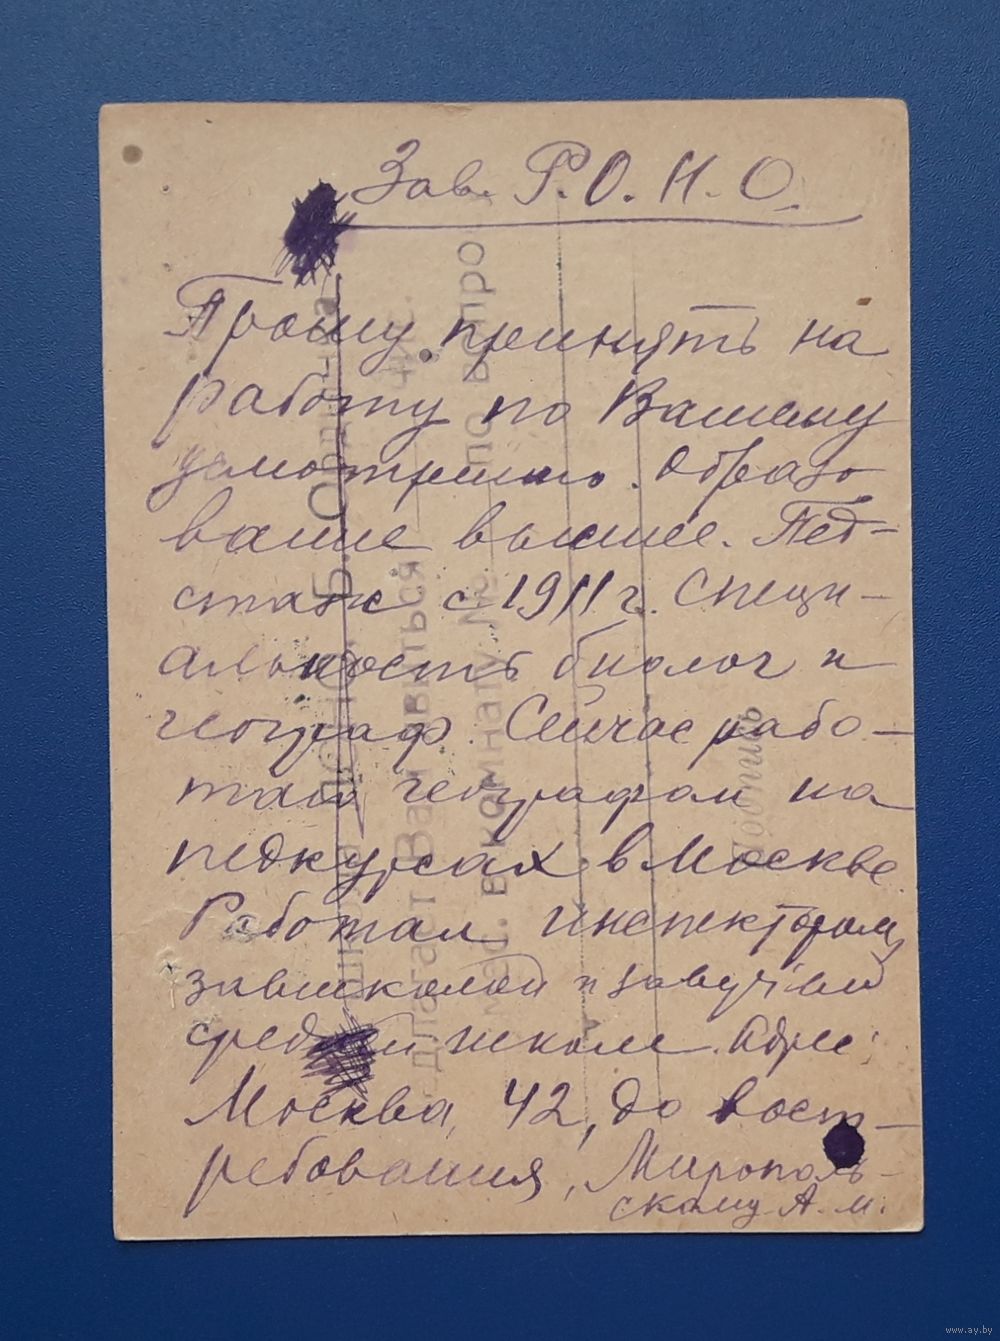 Зав. Р.О.Н.О.
Прошу принять на
работу по Вашему
усмотрению. Образо
вание высшее. Пед-
стаж с 1911 г. Специ-
альность биолог и
географ. Сейчас рабо-
таю географом на
педкурсах в Москве.
Работал инспектором,
завшколой и завучем
средней школы. Адрес:
Москва, 42, до вост-
ребования, Мирополь-
скому А.М.
Б.
явиться
в комнату №
по вопро
Подпись
www.ay.by